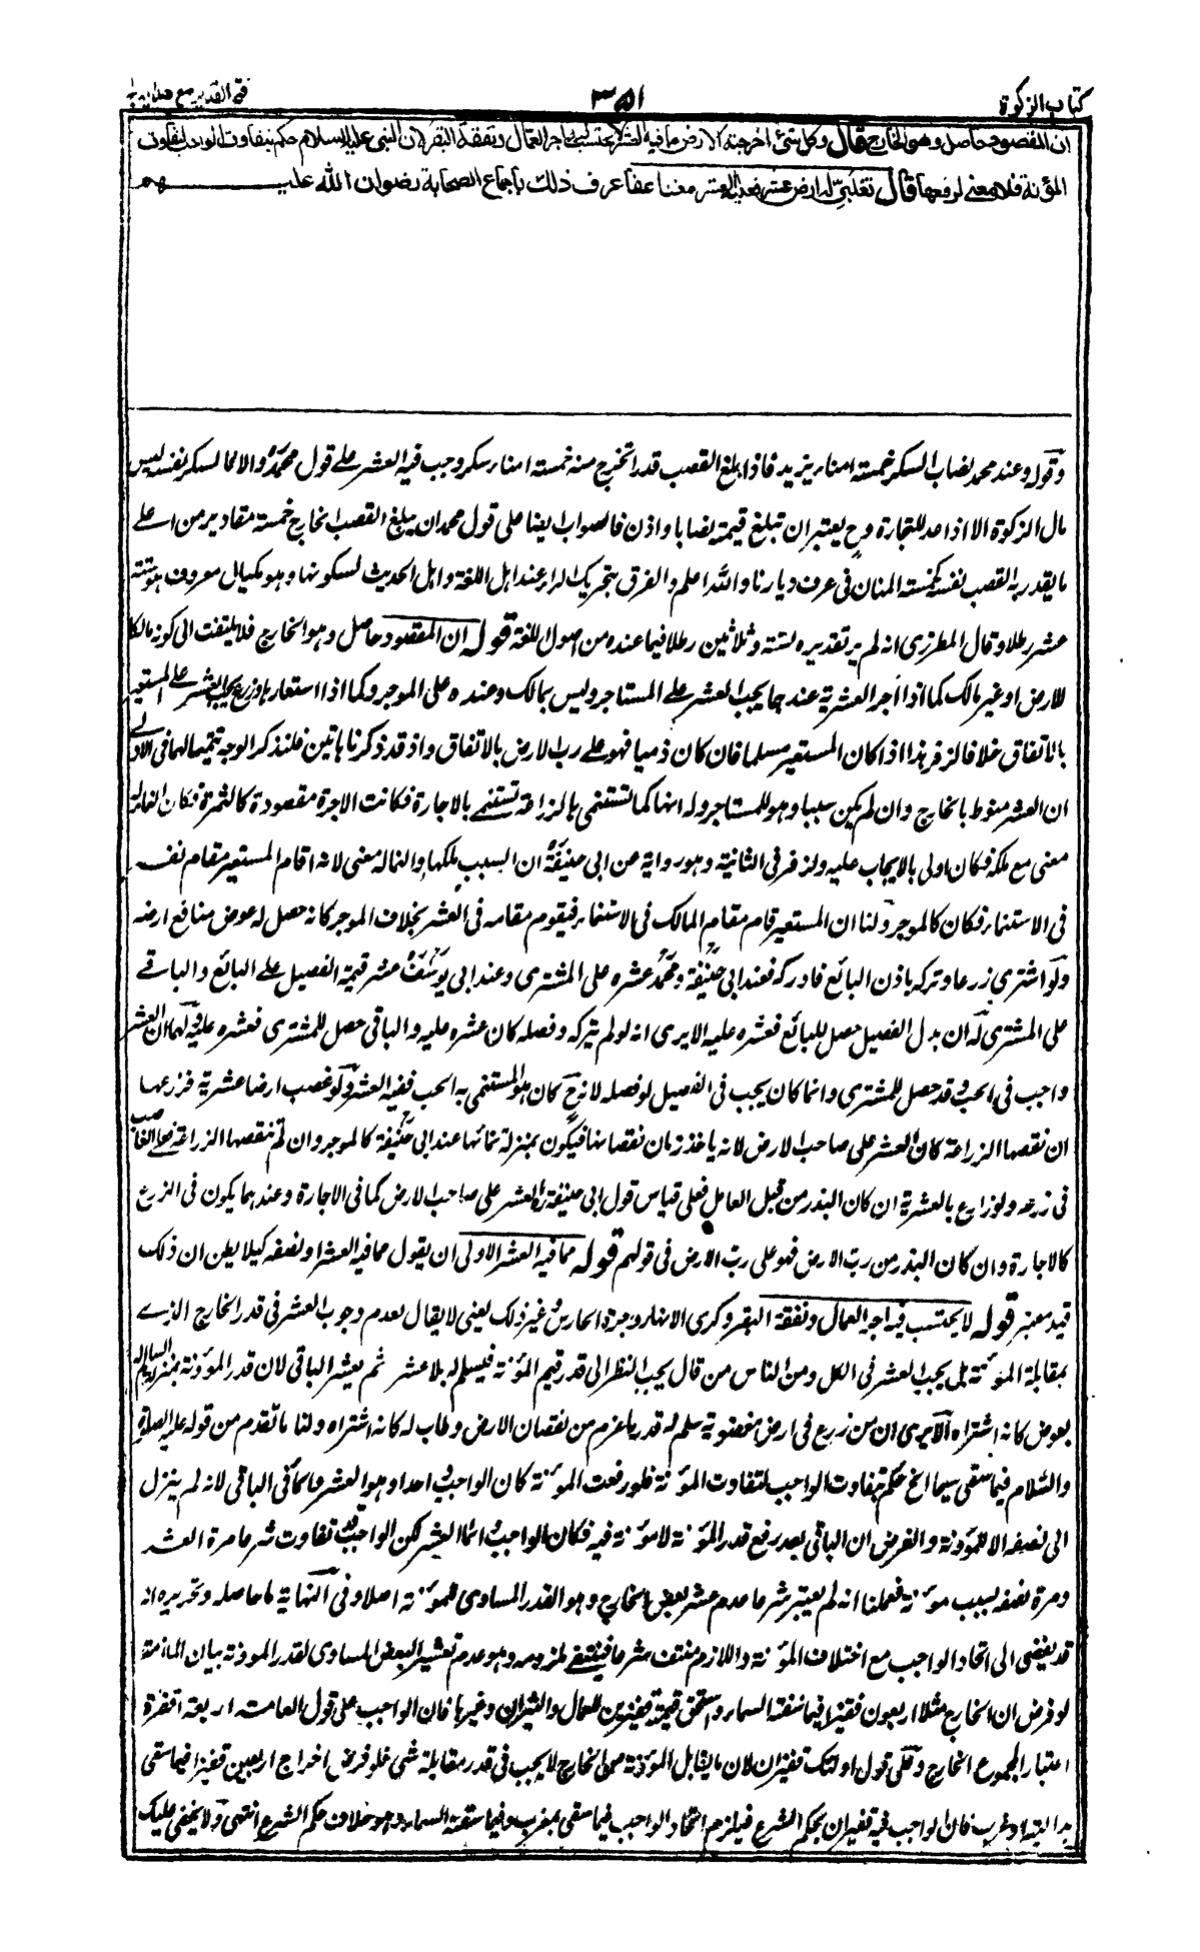 كتاب الزكوة ٣٥١ فتح القدير مع هداية
ان المقصود حاصل وهو الخارج قال وكل شئ اخرجته الارض مما فيه العشر لا يحتسب فيه اجر العمال ونفقة البقر لان النبي عليه السلام حكم بتفاوت الواجب لتفاوت
المؤنة فلا معنى لرفعها قال تغلبي له ارض عشر فعليه العشر مضاعفا عرف ذلك باجماع الصحابة رضوان الله عليهم
وقوله وعند محمد نصاب السكر خمسة امناء يريد فاذا بلغ القصب قدرا تخرج منه خمسة امناء سكر وجب فيه العشر على قول محمد والا فالسكر نفسه ليس
مال الزكوة الا اذا اعد للتجارة وح يعتبر ان تبلغ قيمته نصابا واذن فالصواب ايضا على قول محمد ان يبلغ القصب الخارج خمسة مقادير من اعلى
ما يقدر به القصب نفسه كخمسة اطنان في عرف ديارنا والله اعلم والفرق بتحريك الراء عند اهل اللغة واهل الحديث يسكنونها وهو مكيال معروف هو ستة
عشر رطلا وقال المطرزي انه لم ير تقديره بستة وثلاثين رطلا فيما عنده من اصول اللغة قوله ان المقصود حاصل وهو الخارج فلا يلتفت الى كونه مالكا
للارض او غير مالك كما اذا آجر العشرية عندهما يجب العشر على المستاجر وليس بمالك وعنده على الموجر وكما اذا استعارها وزرع يجب العشر على المستعير
بالاتفاق خلافا لزفر هذا اذا كان المستعير مسلما فان كان ذميا فهو على رب الارض بالاتفاق واذ قد ذكرنا هاتين فلنذكر الوجه تتميما لهما في الاولى
ان العشر منوط بالخارج وان لم يكن سببا وهو للمستاجر وله انها كما تستنمى بالزراعة تستنمى بالاجارة فكانت الاجرة مقصودة كالثمرة فكان النماء له
معنى مع ملكه فكان اولى بالايجاب عليه ولزفر في الثانية وهو رواية عن ابي حنيفة ان السبب ملكها والنماء له معنى لانه اقام المستعير مقام نفسه
في الاستنماء فكان كالموجر ولنا ان المستعير قام مقام المالك في الاستنماء فيقوم مقامه في العشر بخلاف الموجر كانه حصل له عوض منافع ارضه
ولو اشترى زرعا وتركه باذن البائع فادركه فعند ابي حنيفة ومحمد عشره على المشتري وعند ابي يوسف عشر قيمة القصيل على البائع والباقي
على المشتري له ان بدل القصيل حصل للبائع فعشره عليه الا يرى انه لو لم يتركه وفصله كان عشره عليه والباقي حصل للمشتري فعشره عليه ولهما ان العشر
واجب في الحب وقد حصل للمشتري وانما كان يجب في القصيل لو فصله لانه ح كان هو المستنمى به الحب ففيه العشر ولو غصب ارضا عشرية فزرعها
ان نقصها الزراعة كان العشر على صاحب الارض لانه ياخذ ضمان نقصانها فيكون بمنزلة نمائها عند ابي حنيفة كالموجر وان لم تنقصها الزراعة فعلى الغاصب
في زرعه ولو زارع بالعشرية ان كان البذر من قبل العامل فعلى قياس قول ابي حنيفة العشر على صاحب الارض كما في الاجارة وعندهما يكون في الزرع
كالاجارة وان كان البذر من رب الارض فهو على رب الارض في قولهم قوله مما فيه العشر الاولى ان يقول مما فيه العشر او نصفه كيلا يظن ان ذلك
قيد معتبر قوله لا يحتسب فيه اجر العمال ونفقة البقر وكري الانهار واجرة الحارس وغير ذلك يعني لا يقال بعدم وجوب العشر في قدر الخارج الذي
بمقابلة المؤنة بل يجب العشر في الكل ومن الناس من قال يجب النظر الى قدر قيم المؤنة فيسلم له بلا عشر ثم يعشر الباقي لان قدر المؤنة بمنزلة السالم له
بعوض كانه اشتراه الا يرى ان من زرع في ارض مغصوبة سلم له قدر ما غرم من نقصان الارض وطاب له كانه اشتراه ولنا ما تقدم من قوله عليه الصلوة
والسلام فيما سقى سيحا الخ حكم بتفاوت الواجب لتفاوت المؤنة فلو رفعت المؤنة كان الواجب واحدا وهو العشر دائما في الباقي لانه لم ينزل
الى نصفه الا للمؤنة والفرض ان الباقي بعد رفع قدر المؤنة لا مؤنة فيه فكان الواجب دائما العشر لكن الواجب قد تفاوت شرعا مرة العشر
ومرة نصفه بسبب مؤنة فعلمنا انه لم يعتبر شرعا عدم عشر بعض الخارج وهو القدر المساوي للمؤنة اصلا وفي النهاية ما حاصله وتحريره انه
قد يفضي الى اتحاد الواجب مع اختلاف المؤنة واللازم منتف شرعا فينتفي ملزومه وهو عدم تعشير البعض المساوي لقدر المؤنة بيان الملازمة
لو فرض ان الخارج مثلا اربعون قفيزا فيما سقته السماء واستحق قيمة قفيزين للعمال والثيران وغيرها فان الواجب على قول العامة اربعة اقفزة
اعتبارا لمجموع الخارج وعلى قول اولئك قفيزان لان ما يقابل المؤنة من الخارج لا يجب في قدر مقابلة شي فلو فرض اخراج اربعين قفيزا فيما سقى
بدالية او غرب فان الواجب فيه قفيزان بحكم الشرع فيلزم اتحاد الواجب فيما سقى بغرب وفيما سقته السماء وهو خلاف حكم الشرع انتهى ولا يخفى عليك